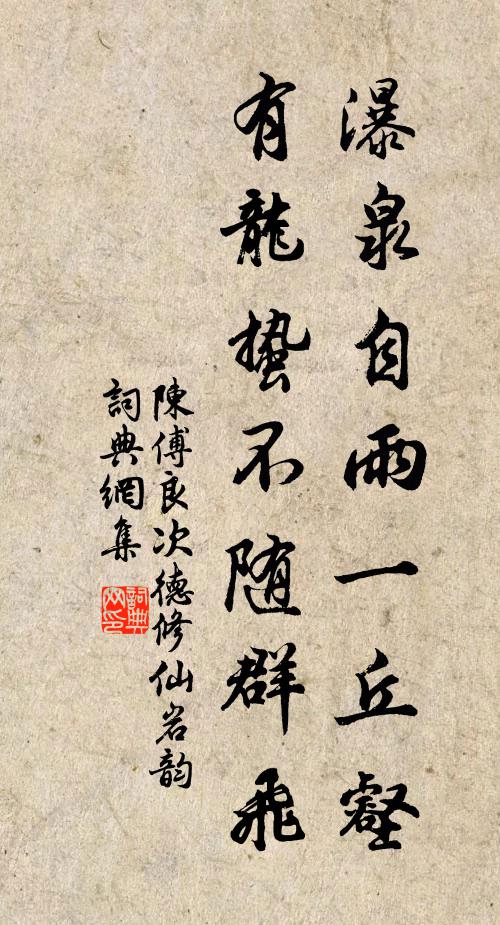 瀑泉自雨一丘壑
有龍蟄不随群飛
陳傅良次德修仙岩韵
詞典網集
詞典网印